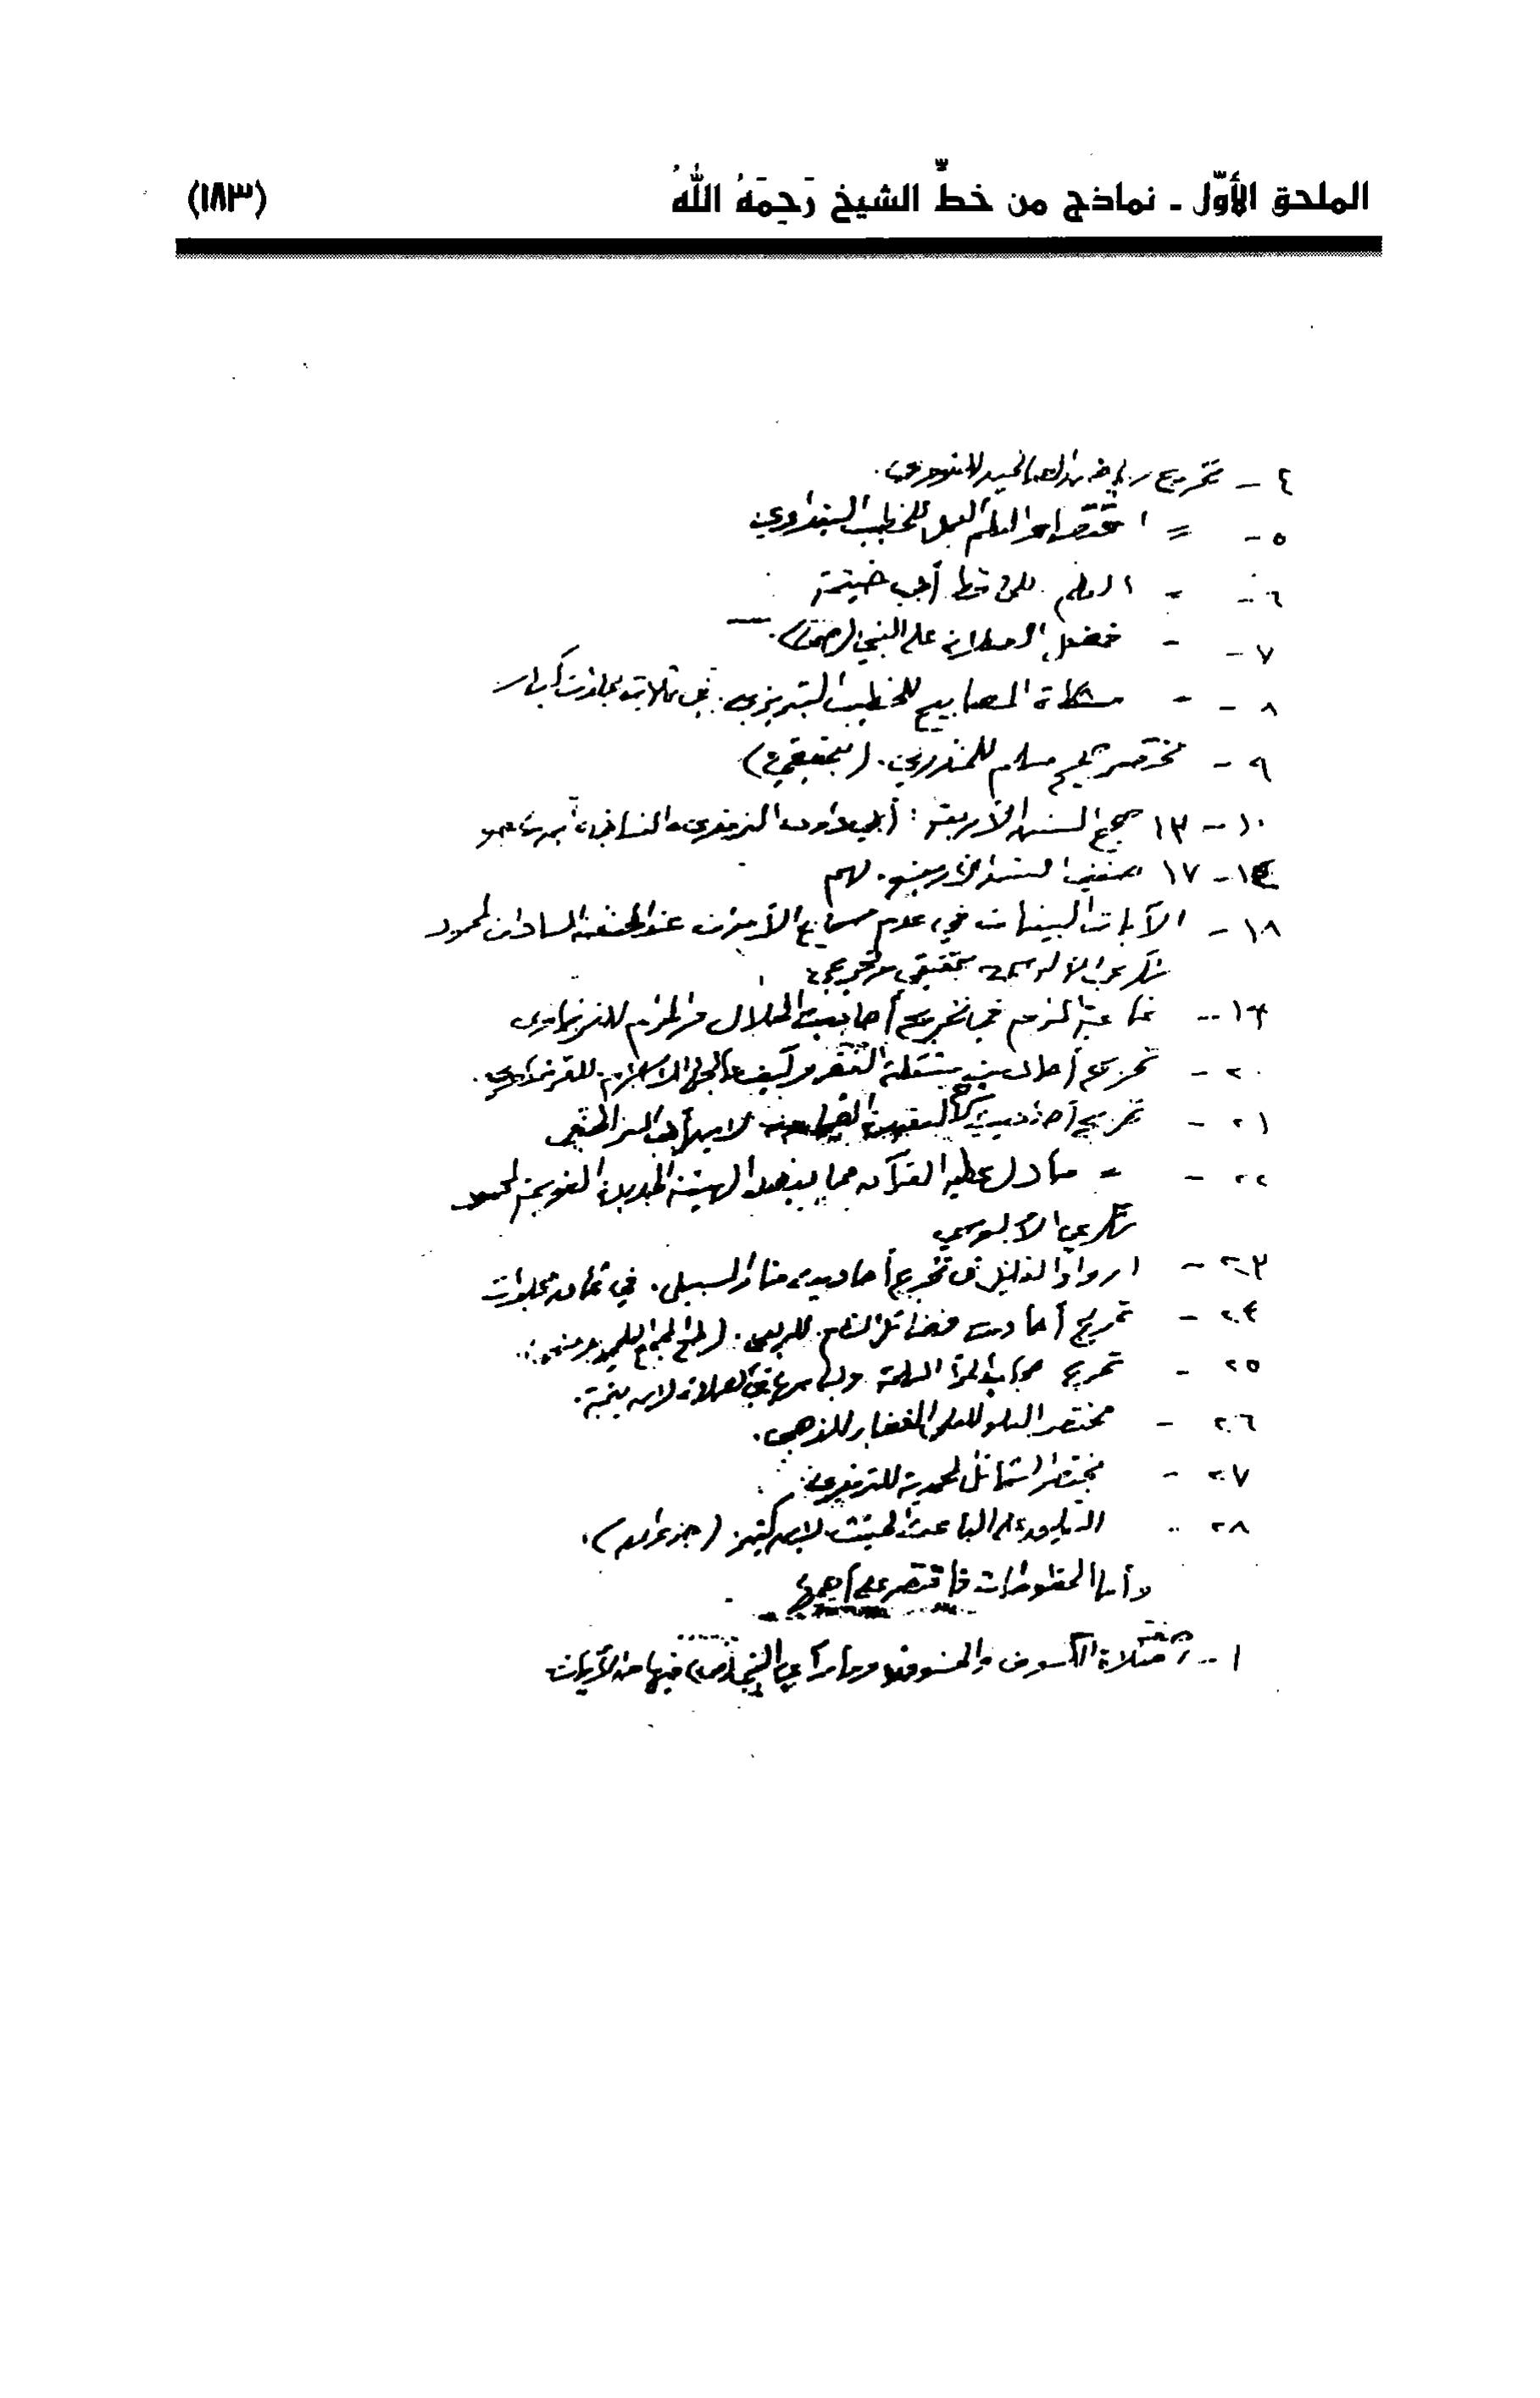 الملحق الأوّل - نماذج من خطِّ الشيخ رَحِمَهُ اللهُ (١٨٣)
٤ - تخريج رياض الصالحين للنووي.
٥ - = اقتضاء العلم العمل للخطيب البغدادي
٦ - = العلم للحافظ أبي خيثمة
٧ - - فضل الصلاة على النبي (ص)
٨ - - مشكاة المصابيح للخطيب التبريزي. في ثلاث مجلدات كبار
٩ - مختصر صحيح مسلم للمنذري. (بتحقيقي)
١٠ - ١٣ صحيح السنن الأربعة: أبي داود الترمذي والنسائي وابن ماجه
١٤ - ١٧ ضعيف السنن الأربعة. لهم
١٨ - الآيات البينات في عدم سماع الأموات عند الحنفية السادات لمحمود
شكري الألوسي بتحقيقي وتخريجي
١٩ - غاية المرام في تخريج أحاديث الحلال والحرام للقرضاوي
٢٠ - تخريج أحاديث مشكلة الفقر وكيف عالجها الإسلام للقرضاوي.
٢١ - تخريج أحاديث العقيدة الطحاوية لابن أبي العز الحنفي
٢٢ - = ما دل عليه القرآن مما يعضد الهيئة الجديدة القويمة لمحمود
شكري الألوسي
٢٣ - ارواء الغليل في تخريج أحاديث منار السبيل. في ثمان مجلدات
٢٤ - تخريج أحاديث فضائل الشام للربعي.
٢٥ - تخريج حجاب المرأة المسلمة ولباسها في الصلاة لابن تيمية.
٢٦ - مختصر العلو للعلي الغفار للذهبي.
٢٧ - مختصر الشمائل المحمدية للترمذي.
٢٨ - التعليق على الباعث الحثيث لابن كثير
وأما المخطوطات فأقتصر على أهمها
١ - صلاة الكسوف والخسوف وما رأى النبي (ص) فيها من الآيات